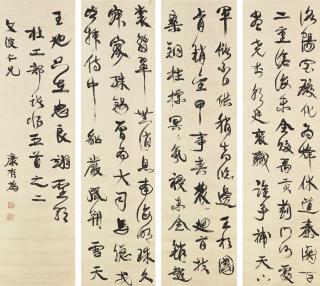 洛陽宮殿化為烽休道秦關百
二重滄海未全歸禹貢薊門何處
盡堯封朝廷袞職誰爭補天下
軍儲不自供稍喜臨邊王相國
肯銷金甲事春農迴首扶
桑銅柱標冥冥氛祲未全銷越
裳翡翠無消息南海明珠久
寂寥殊錫曾為大司馬總戎
皆插侍中貂炎風朔雪天
王地只在忠良翊聖朝
杜工部諸將五首之二
仁兄
康有為